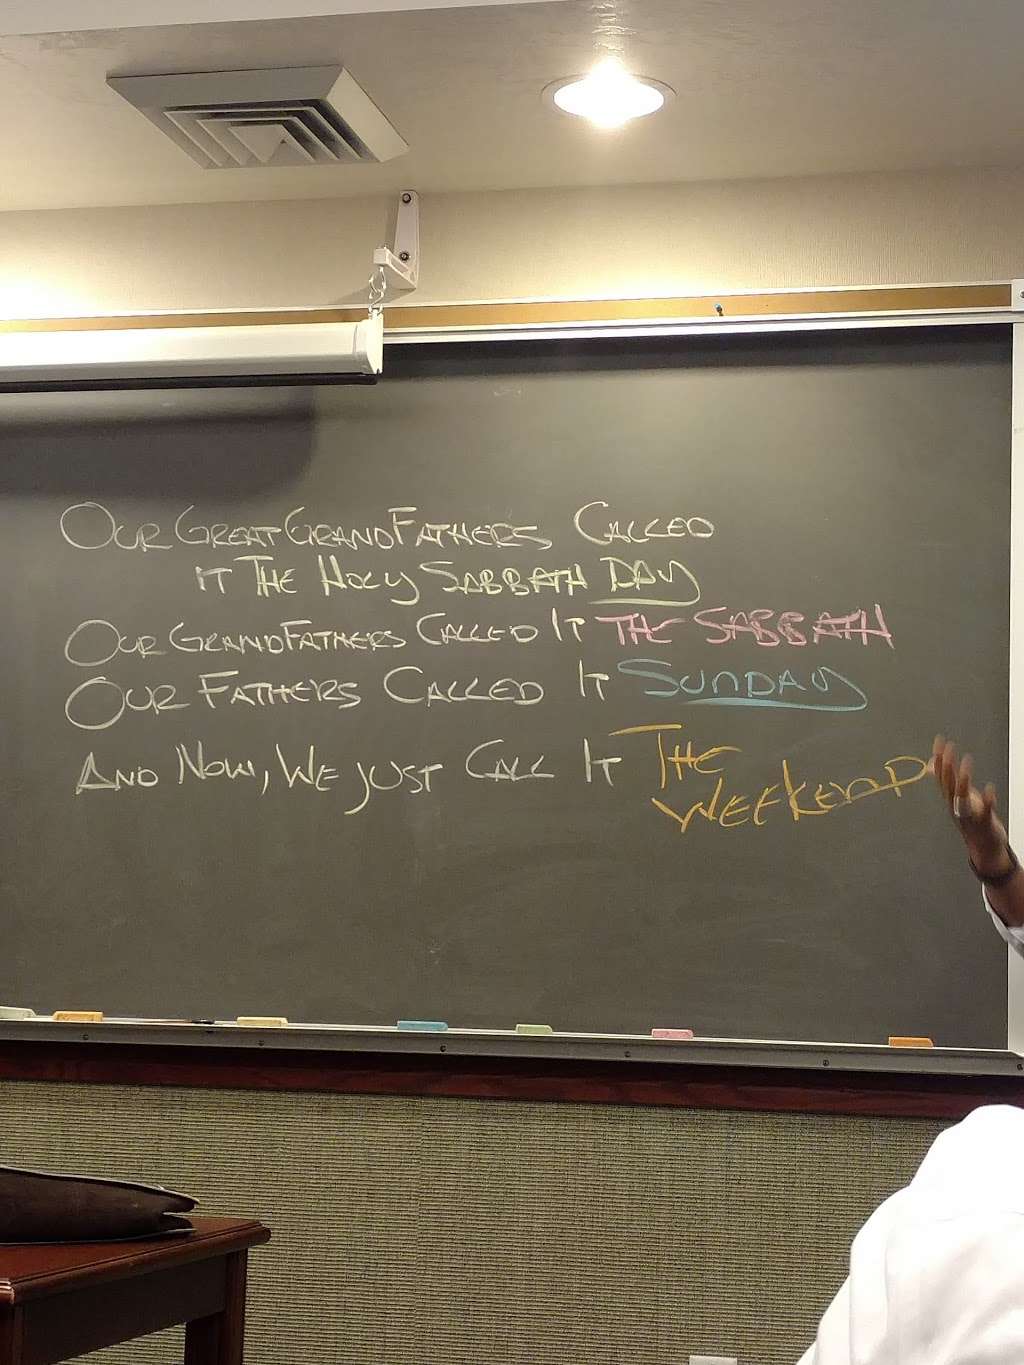 Our Great GrandFathers Called
it The Holy Sabbath Day
Our GrandFathers Called It The Sabbath
Our Fathers Called It Sunday
And Now, We just Call It The
Weekend